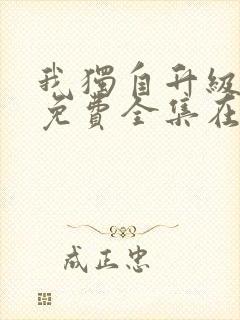 我獨自升級
免費全集在
成正忠